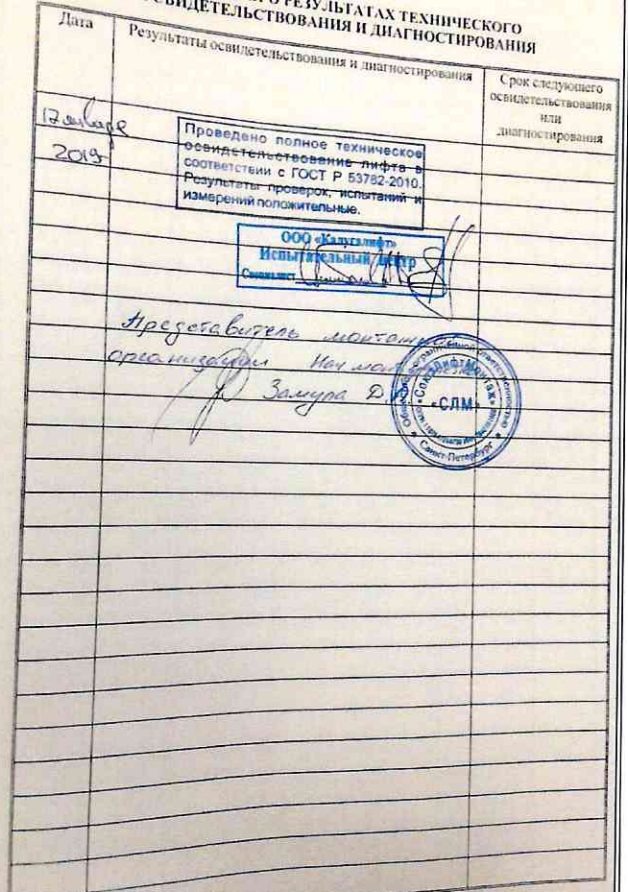 РЕЗУЛЬТАТАХ ТЕХНИЧЕСКОГО
ОСВИДЕТЕЛЬСТВОВАНИЯ И ДИАГНОСТИРОВАНИЯ
Дата
Результаты освидетельствования и диагностирования
Срок следующего
освидетельствования
или
диагностирования
17 января
2019
Проведено полное техническое
освидетельствование лифта в
соответствии с ГОСТ Р 53782-2010.
Результаты проверок, испытаний и
измерений положительные.
ООО «Калугалифт»
Испытательный центр
Специалист
Представитель
организации
Замула Д.
Общество с ограниченной ответственностью
«СоюзЛифтМонтаж»
«СЛМ»
Санкт-Петербург